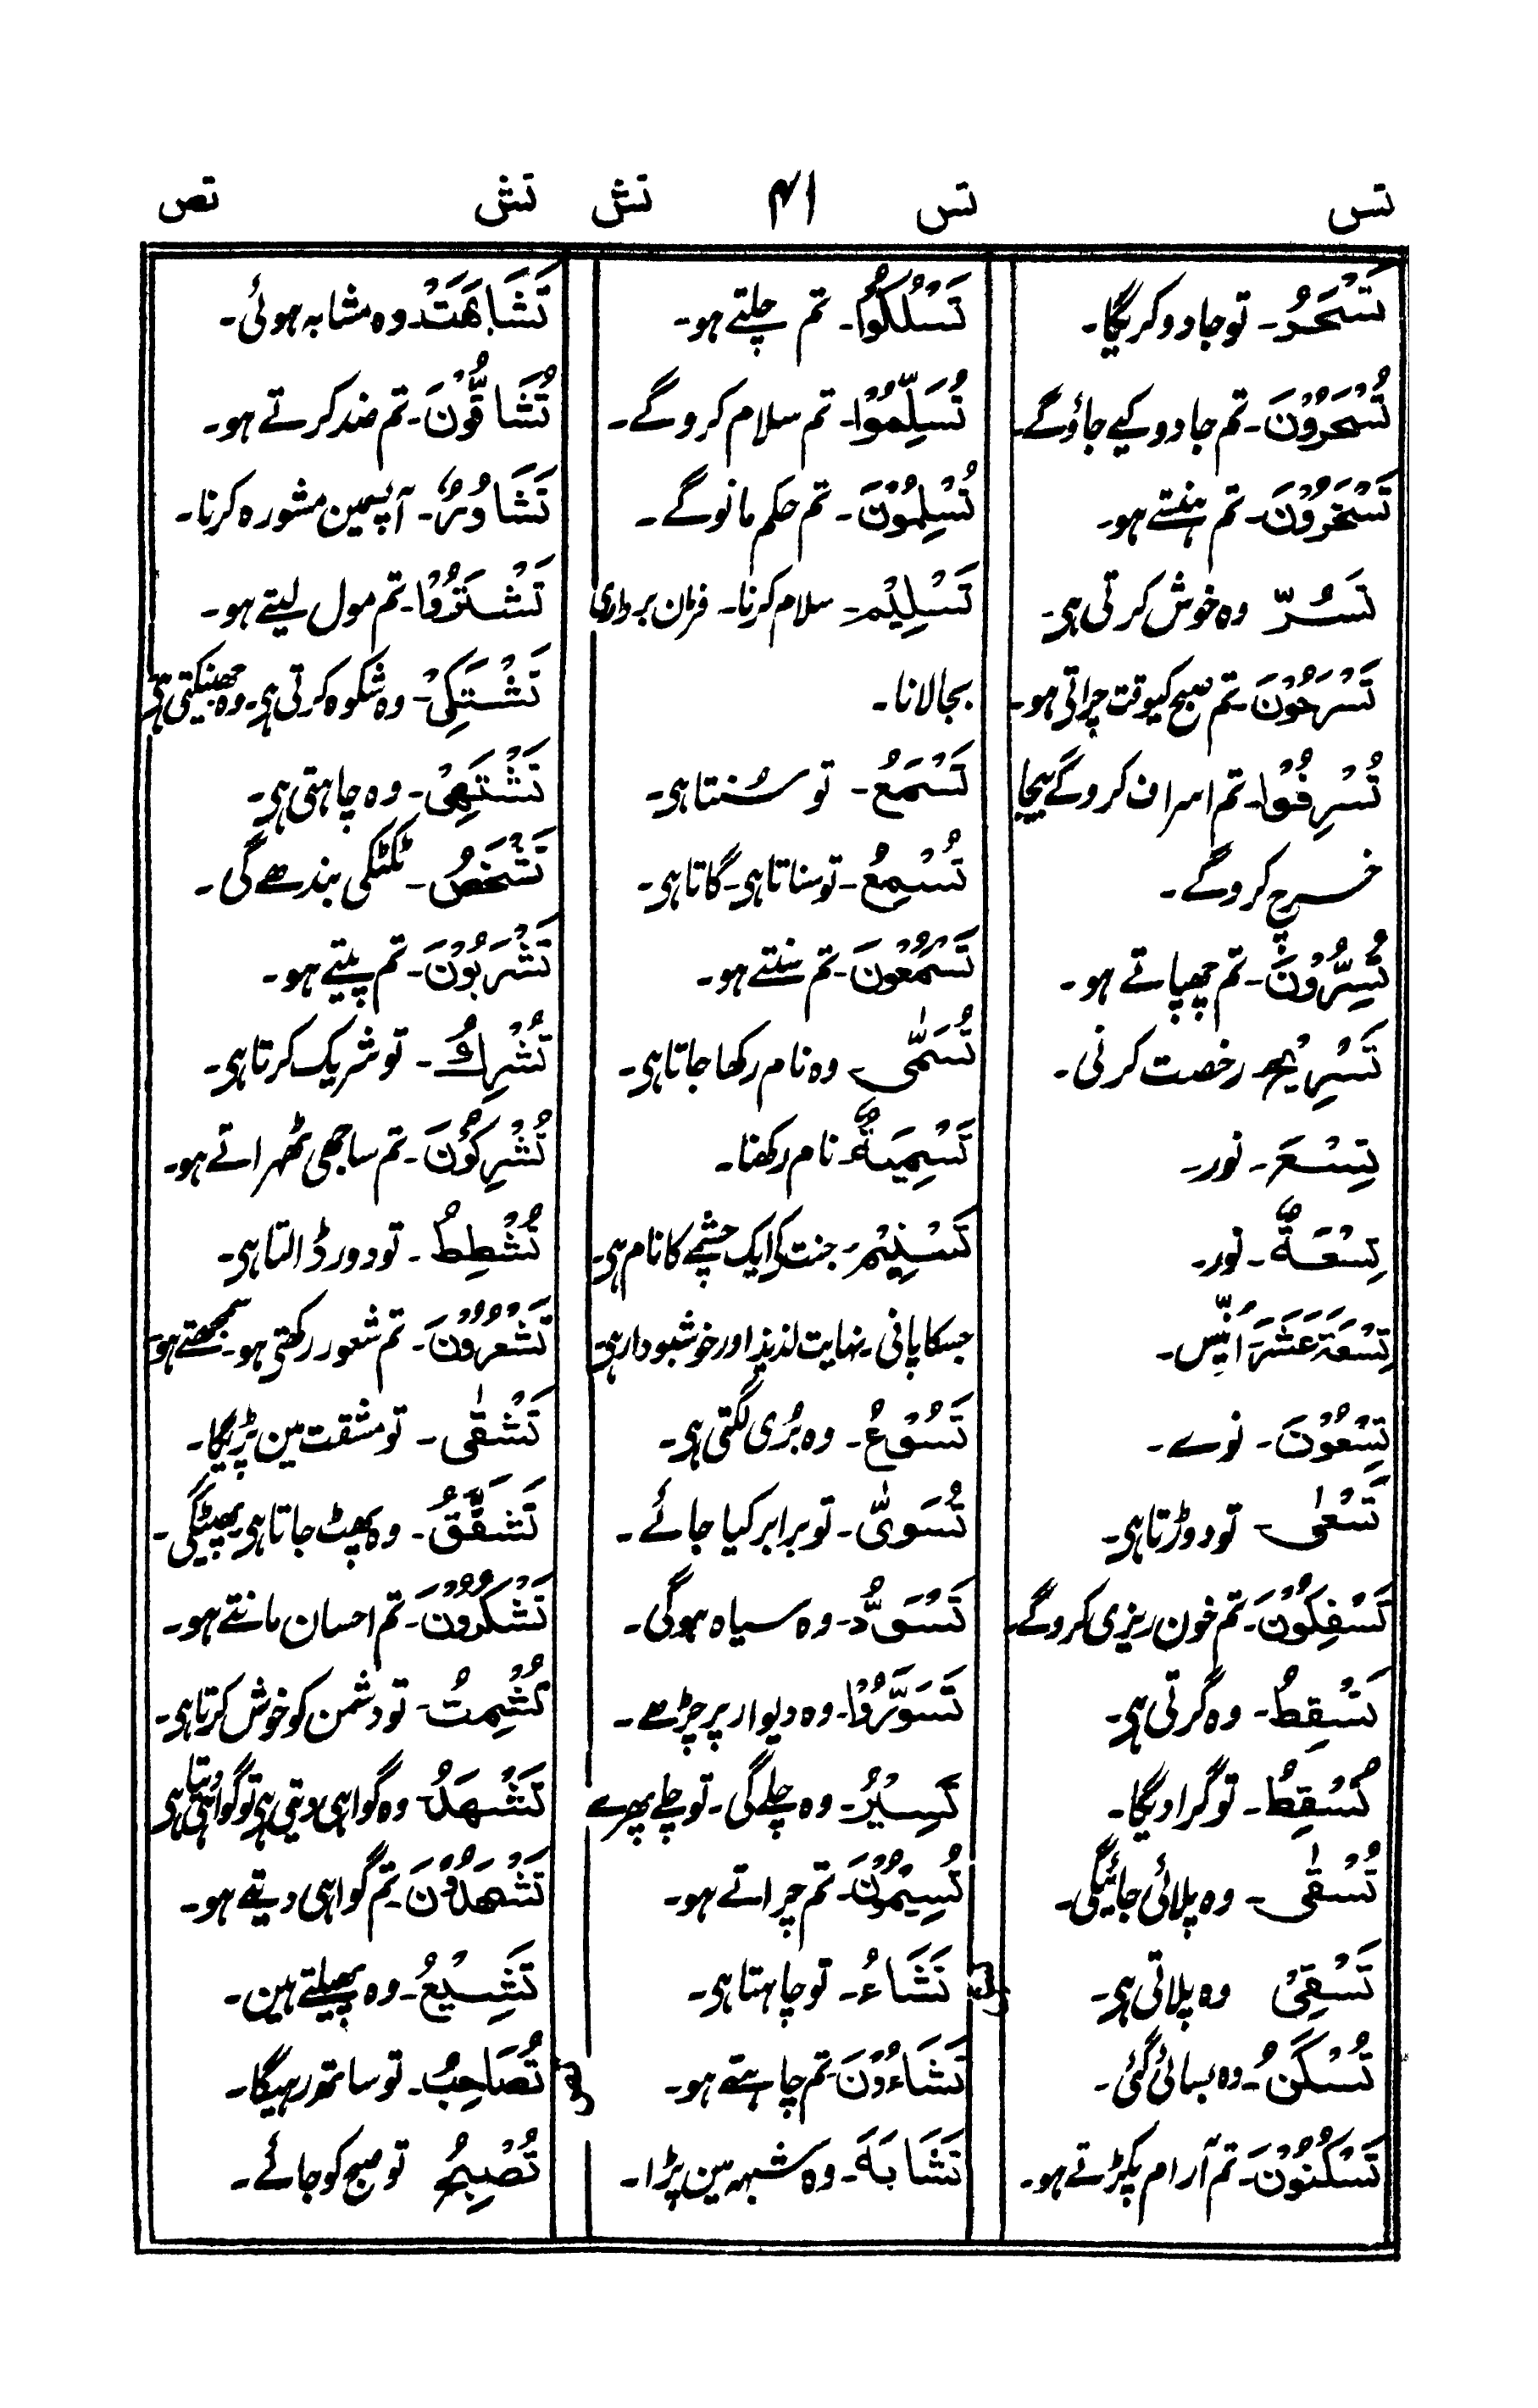 تس تس ۴۱ تش تش تص
تَسْحَرُ۔ تو جادو کریگا۔
تُسْحَرُوْنَ۔ تم جادو کیے جاؤگے۔
تَسْخَرُوْنَ۔ تم ہنستے ہو۔
تَسُرّ وہ خوش کرتی ہی۔
تَسْرَحُوْنَ۔ تم صبح کیوقت چراتی ہو۔
تُسْرِفُوْا۔ تم اسراف کروگے بیجا
خرچ کروگے۔
تُسِرُّوْنَ۔ تم چھپاتے ہو۔
تَسْرِیْح۔ رخصت کرنی۔
تِسْعَ۔ نور۔
تِسْعَةٌ۔ نور۔
تِسْعَةَ عَشَرَ اُنّیس۔
تِسْعُوْنَ۔ نوے۔
تَسْعٰی۔ تو دوڑتا ہی۔
تَسْفِکُوْنَ۔ تم خون ریزی کروگے۔
تَسْقِطُ۔ وہ گرتی ہی۔
تُسْقِطُ۔ تو گرا دیگا۔
تُسْقٰی۔ وہ پلائی جائیگی۔
تَسْقِیْ وہ پلاتی ہی۔
تُسْکَنُ۔ وہ بسائی گئی۔
تَسْکُنُوْنَ۔ تم آرام پکڑتے ہو۔
تَسْلُکُوْا۔ تم چلتے ہو۔
تُسَلِّمُوْا۔ تم سلام کروگے۔
تُسْلِمُوْنَ۔ تم حکم مانوگے۔
تَسْلِیْم۔ سلام کرنا۔ فرمان برداری
بجا لانا۔
تَسْمَعُ۔ تو سنتا ہی۔
تُسْمِعُ۔ تو سناتا ہی۔ گاتا ہی۔
تَسْمَعُوْنَ۔ تم سنتے ہو۔
تُسَمّٰی وہ نام رکھا جاتا ہی۔
تَسْمِیَةٌ۔ نام رکھنا۔
تَسْنِیْم۔ جنت کے ایک چشمے کا نام ہی۔
جسکا پانی۔ نہایت لذیذ اور خوشبودار ہی۔
تَسُوْءُ۔ وہ بُری لگتی ہی۔
تُسَوّٰی۔ تو برابر کیا جائے۔
تَسْوَدُّ۔ وہ سیاہ ہوگی۔
تَسَوَّرُوْا۔ وہ دیوار پر چڑھے۔
تَسِیْرُ۔ وہ چلے گی۔ تو چلے پھرے
تُسِیْمُوْنَ۔ تم چراتے ہو۔
تَشَاءُ۔ تو چاہتا ہی۔
تَشَاءُوْنَ۔ تم چاہتے ہو۔
تَشَابَهَ۔ وہ شبہہ مین پڑا۔
تَشَابَهَتْ۔ وہ مشابہ ہوئی۔
تُشَاقُّوْنَ۔ تم ضد کرتے ہو۔
تَشَاوُرٌ۔ آپسمین مشورہ کرنا۔
تَشْتَرُوْا۔ تم مول لیتے ہو۔
تَشْتَکِیْ۔ وہ شکوہ کرتی ہی۔ وہ جھینکتی ہی
تَشْتَهِیْ۔ وہ چاہتی ہی۔
تَشْخَصُ۔ ٹکٹکی بندھے گی۔
تَشْرَبُوْنَ۔ تم پیتے ہو۔
تُشْرِكُ۔ تو شریک کرتا ہی۔
تُشْرِکُوْنَ۔ تم ساجھی ٹھہراتے ہو۔
تُشْطِطُ۔ تو دور ڈالتا ہی۔
تَشْعُرُوْنَ۔ تم شعور رکھتی ہو۔ سمجھتے ہو۔
تَشْقٰی۔ تو مشقت مین پڑیگا۔
تَشَقَّقُ۔ وہ پھٹ جاتا ہی۔ پھٹیگی۔
تَشْکُرُوْنَ۔ تم احسان مانتے ہو۔
تُشْمِتُ۔ تو دشمن کو خوش کرتا ہی۔
تَشْهَدُ۔ وہ گواہی دیتی ہی تو گواہی دیتا ہی
تَشْهَدُوْنَ۔ تم گواہی دیتے ہو۔
تَشِیْعُ۔ وہ پھیلتے ہین۔
تُصَاحِبُ۔ تو ساتھ رہیگا۔
تُصْبِحُ تو صبح کو جائے۔
تش
تص